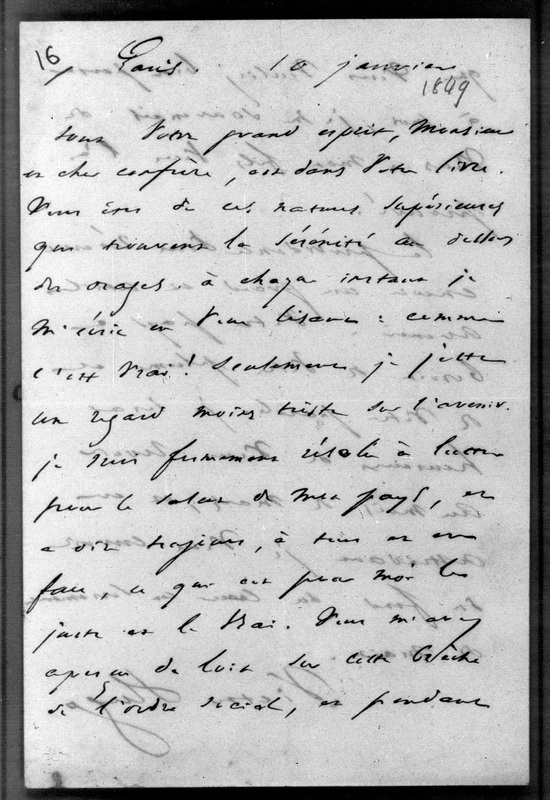 16
Paris. 10 janvier
1849
tout Votre grand esprit, Monsieur
et cher confrère, est dans Votre livre.
Vous êtes de ces natures supérieures
qui trouvent la sérénité au dessus
des orages. à chaque instant je
m'écrie en Vous lisant : comme
c'est vrai ! Seulement je jette
un regard moins triste sur l'avenir.
je suis fermement résolu à lutter
pour le salut de mon pays, et
à dire toujours, à tous et en
face, ce qui est pour moi le
juste et le Vrai. Vous m'avez
aperçu de loin sur cette brèche
de l'ordre social, et pendant